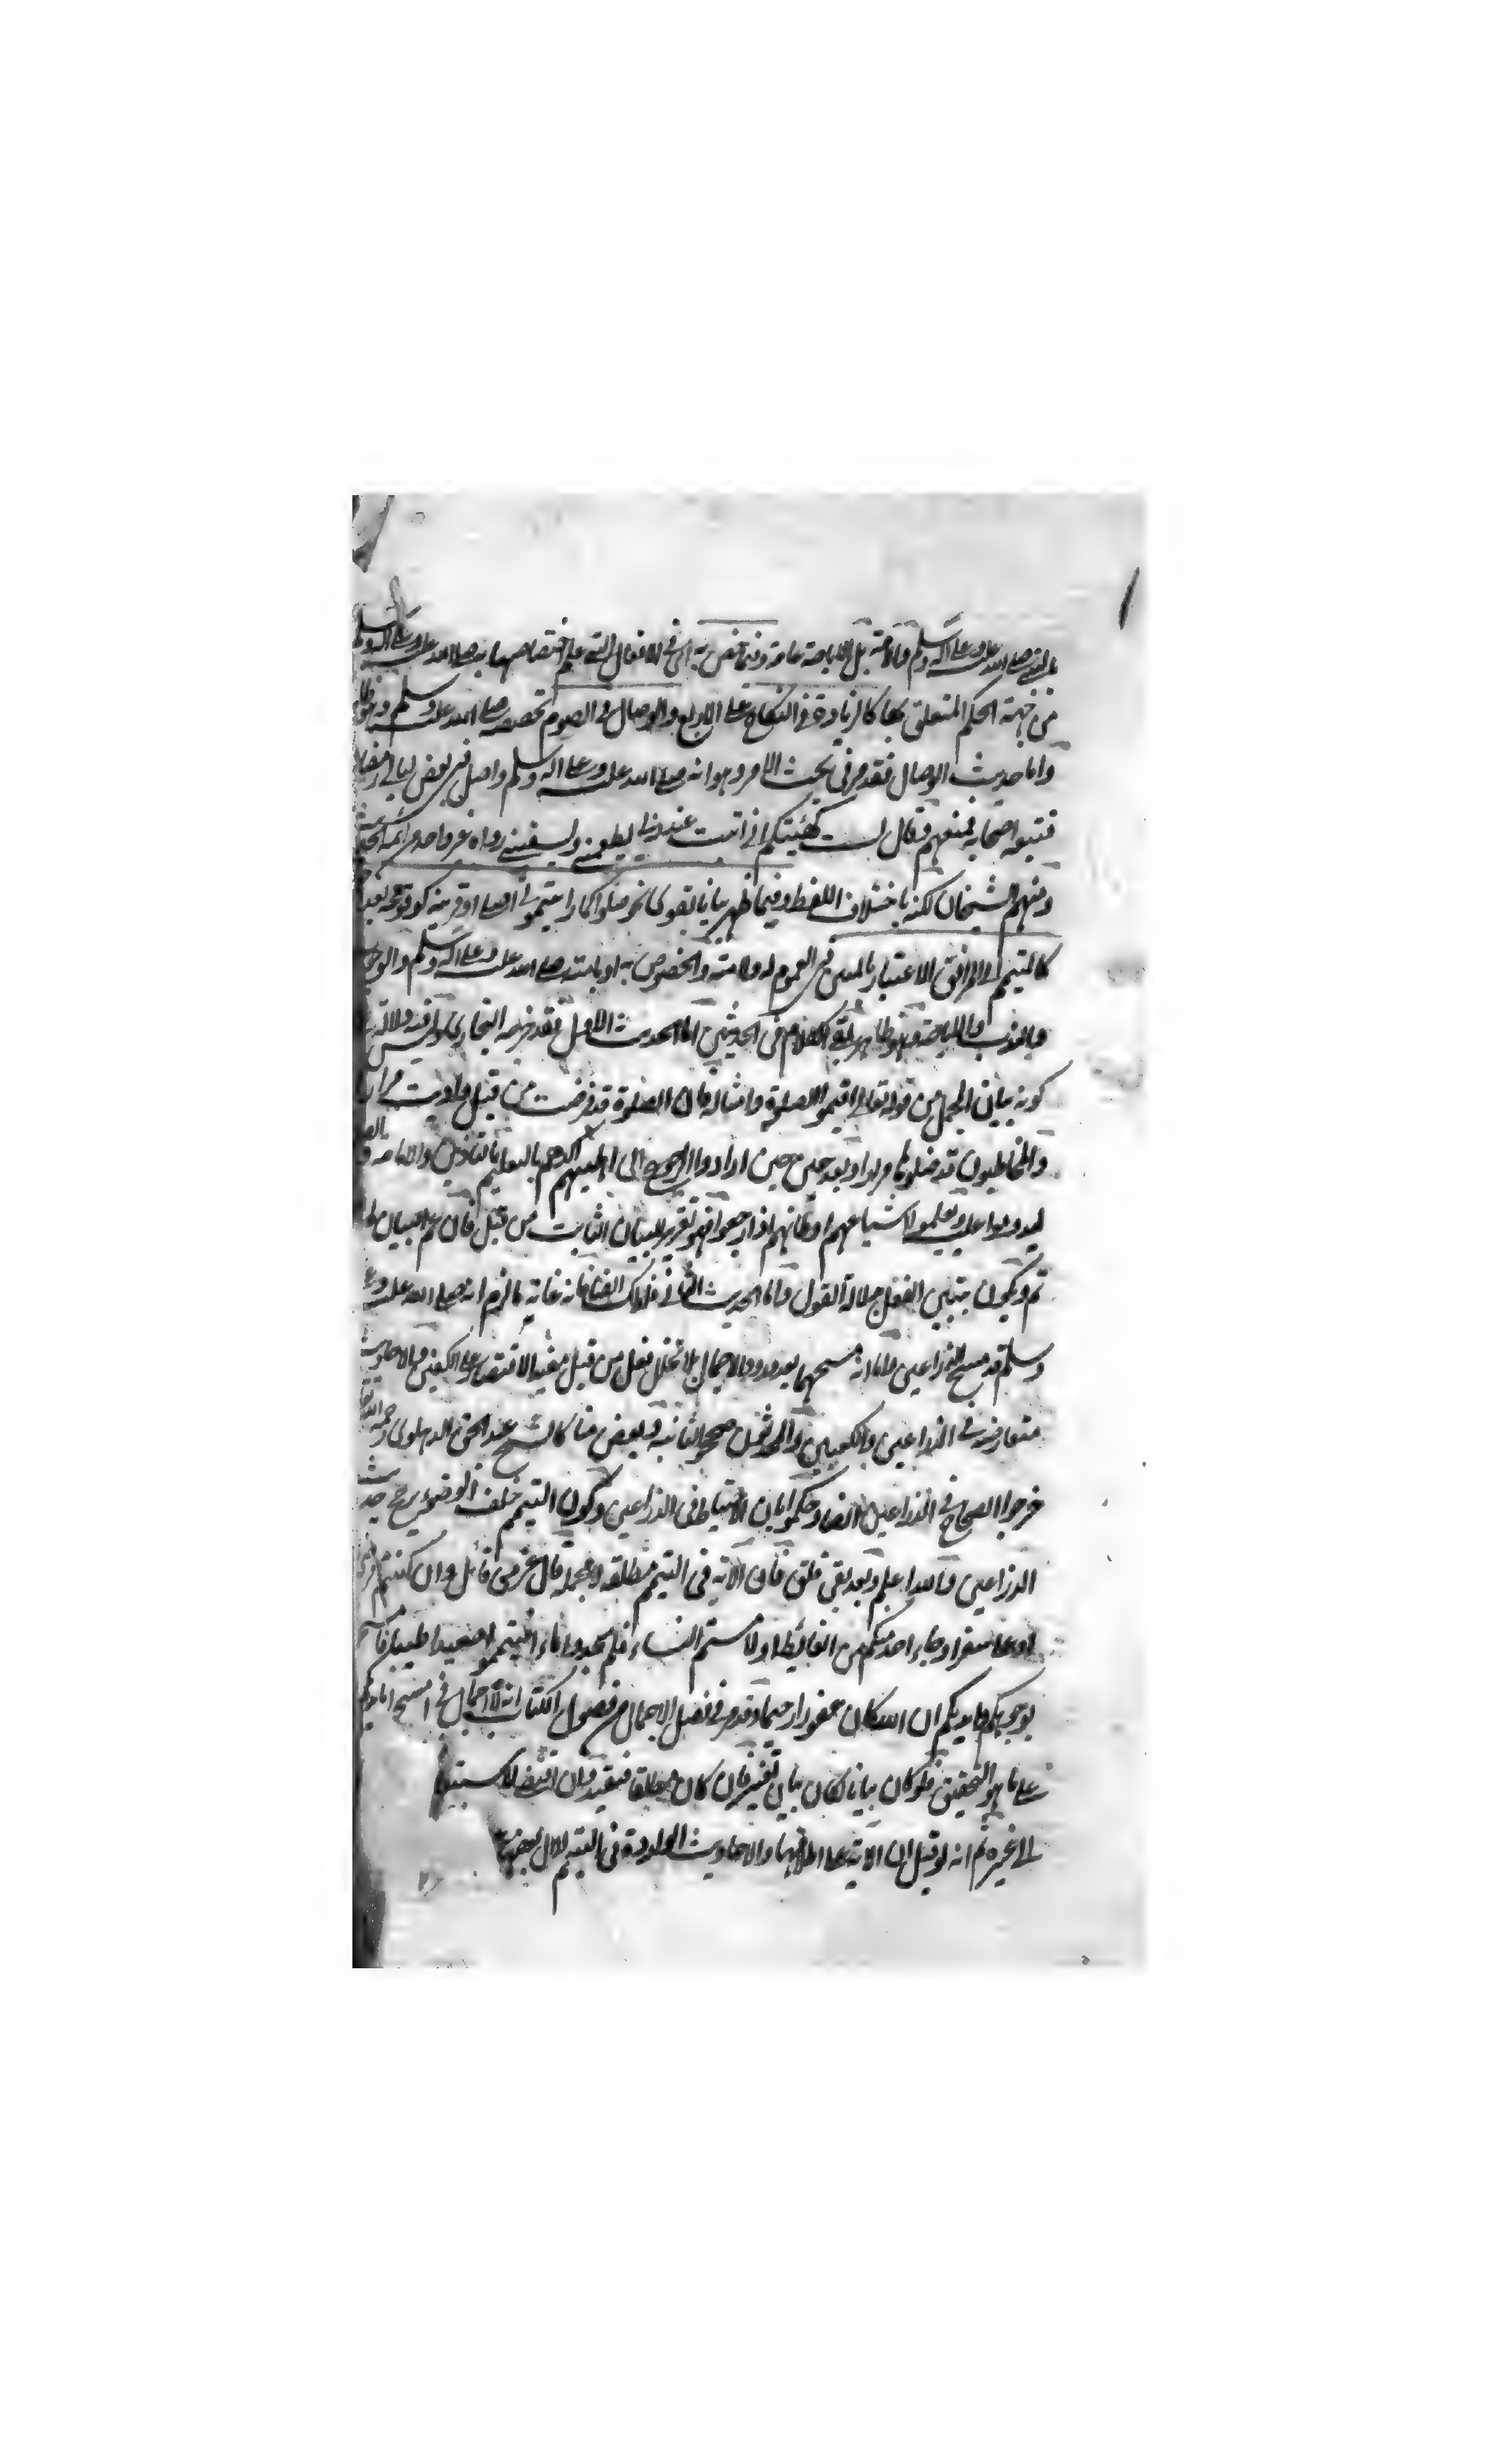 صلى الله عليه وعلى آله وسلم والأمة بل الإباحة عامة وفيما خص به أي في الأفعال التي علم اختصاصها به صلى الله عليه وعلى آله وسلم
من جهة الحكم المتعلق بها كالزيادة في النكاح على الأربع والوصال في الصوم تخصه صلى الله عليه وسلم وهو ظاهر
واما حديث الوصال فقد مر في بحث الأمر وهو انه صلى الله عليه وعلى آله وسلم واصل في بعض ليالي رمضان
فتبعه اصحابه فمنعهم وقال لست كهيئتكم اني ابيت عند ربي يطعمني ويسقيني رواه غير واحد من أئمة الحديث
ومنهم الشيخان لكنه باختلاف اللفظ وفيما ظهر بيانا بقول كنحو صلوا كما رأيتموني اصلي او قرينة كوقوعه بعد
كالتيمم إلى المرافق الاعتبار بالمبين في العموم له ولامته والخصوص به او بامته صلى الله عليه وعلى آله وسلم والوجوب
والندب والاباحة وهو ظاهر بقي الكلام في الحديثين اما الحديث الأول فقد خرجه البخاري وليس فيه دلالة
كونه بيان المجمل من قوله تعالى اقيموا الصلوة وامثاله فان الصلوة قد فرضت من قبل
والمخاطبون قد صلوها مرارا وبعد حين حين ارادوا الرجوع الى اهليهم اكدهم بالتعليم بالتأذين والامامة
ليداوموا عليه ويعلموا اشياعهم اوطانهم اذا رجعوا فهو تقرير للبيان الثابت من قبل فان البيان
ثم ويكون بتبيين الفعل بدلالة القول واما الحديث الثاني فكذلك ايضا فانه غاية ما لزم انه صلى الله عليه وعلى
وسلم قد مسح الذراعين واما انه مسحهما بعد ورود الاجمال بلا تخلل فعل من قبل مفيد الاقتصار على الكفين والاحاديث
متعارضة في الذراعين والكفين والمحدثون صححوا الثانية وبعض منا كالشيخ عبد الحق الدهلوي رحمه الله
خرجوا الصحاح في الذراعين ايضا وحكموا بان الاحتياط في الذراعين وكون التيمم خلف الوضوء يرجح حديث
الذراعين والله اعلم وبعد بقي قلق فان الآية في التيمم مطلقة لا مجملة قال عز من قائل وان كنتم مرضى
او على سفر او جاء احد منكم من الغائط او لامستم النساء فلم تجدوا ماء فتيمموا صعيدا طيبا فامسحوا
بوجوهكم وايديكم ان الله كان عفوا رحيما وقد مر في فصل الاجمال من فصول الكتاب انه لا اجمال في امسحوا
على ما هو التحقيق فلو كان بيانا لكان بيان تغيير فان كان مطلقا فتقييد وان
الى غيره ثم انه لو قيل ان الآية على اطلاقها والاحاديث الواردة في التيمم لا